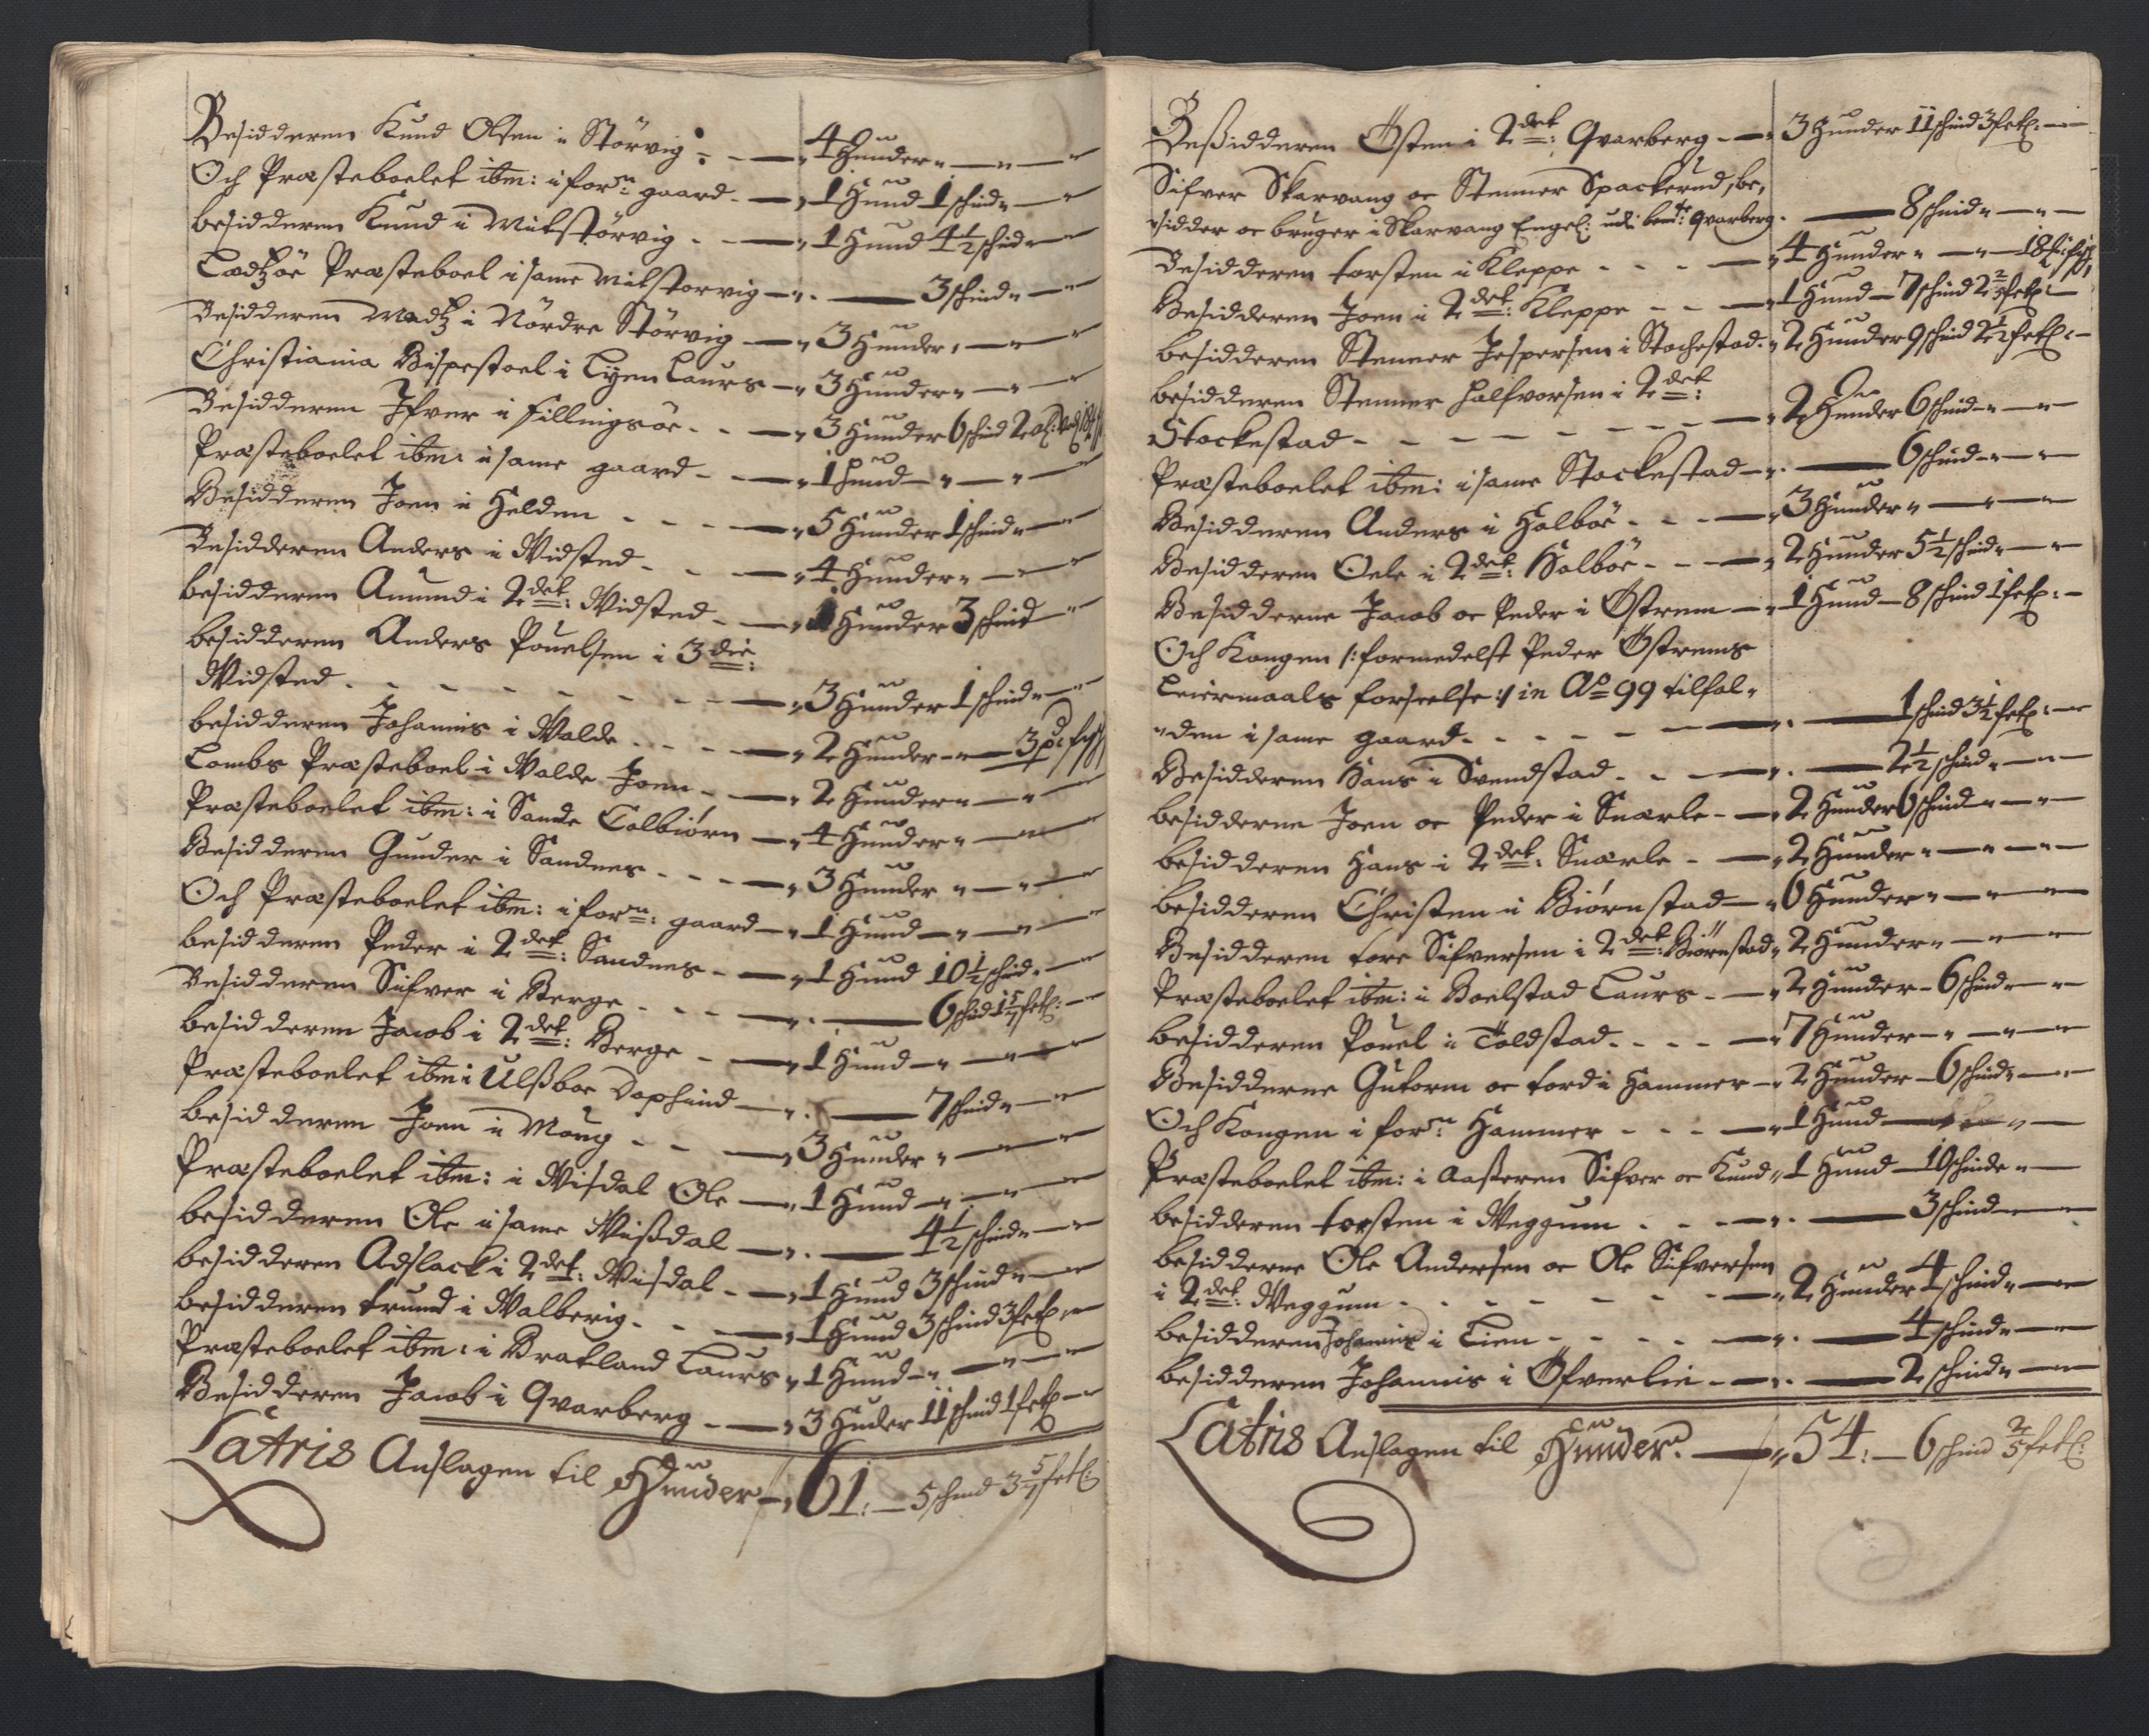 Besidderen Knud Olsen i Störvig: - — „ 4 Hunder „ — „ —
Och Præsteboelet ibm: i forn: gaard - — „ 1 Hund 1 schind „ —
besidderen Knud i Mitstörvig - - — „ 1 Hund 4½ schind „ —
Lædtzöe Præsteboel i same Mitstorvig — „ . — 3 schind „ —
Besidderen Madtz i Nördre Störvig — „ 3 Hunder „ —
Christiania Bispestoel i Lyen Laurs — „ 3 Hunder „ — „ —
Besidderen Ifver i Fillingsöe - - — „ 3 Hunder 6 schind
Præsteboelet ibm: i same gaard - - — „ 1 Hund — „ — „ —
Besidderen Joen i Helden - - - — „ 5 Hunder 1 schind „ —
Besidderen Anders i Widsted - - — „ 4 Hunder „ —
besidderen Amund i 2det: Widsted - — „ Hunder 3 schind „
besidderen Anders Pouelsen i 3die:
Widsted - - - - - - — „ 3 Hunder 1 schind „ —
besidderen Johannis i Walde - - - — „ 2 Hunder — „ — 3
Lombs Præsteboel i Walde Joen - — „ 2 Hunder „ — „ —
Præsteboelet ibm: i Sande Colbiörn — „ 4 Hunder „ —
Besidderen Gunder i Sandnes - - - — „ 3 Hunder „ — „ —
Och Præsteboelet ibm: i forn: gaard — „ 1 Hund — „ — „ —
besidderen Peder i 2det: Sandnes - — „ 1 Hund 10½ schind „ —
Besidderen Sifver i Berge - - - — „ . — 6 schind 1 5/7 fetl: —
besidderen Jacob i 2det: Berge - — „ 1 Hund — „ —
Præsteboelet ibm i Ulsboe Dophind — „ . — 7 schind „ —
besidderen Joen i Moug - - — „ 3 Hunder „ —
Præsteboelet ibm: i Wisdal Ole — „ 1 Hund — „ —
besidderen Ole i same Wissdal — „ . — 4½ schind „ —
besidderen Adslack i 2det: Wisdal - — „ 1 Hund 3 schind „ —
besidderen trund i Walberig - - — „ 1 Hund 3 schind 3 fetl: —
Præsteboelet ibm: i Bratland Laurs „ 1 Hund — „ — „ —
Besidderen Jacob i Qvarberg - — „ 3 Huder 11 schind 1 fetl: —
Latris Anslagen til Hunder — „ 61: — 5 schind 3 5/7 fetl:
Bessidderen Østen i 2det: Qvarberg - — „ 3 Hunder 11 schind 3 fetl: —
Sifver Skarvang oc Stenner Spackerud, be,
„sidder oc bruger i Skarvang Engel: udi bemte: Qvarberg - — 8 schind „ — „ —
Besidderen torsten i Kleppe - - - — „ 4 Hunder „ — „ — 18
Besidderen Joen i 2det: Kleppe - - — „ 1 Hund — 7 schind 2 fetl: —
besidderen Stenner Jespersen i Stochestad - „ 2 Hunder 9 schind 2½ fetl: —
besidderen Stenner Halfvorsen i 2det:
Stockestad - - - - - - - — „ 2 Hunder 6 schind — „ —
Præsteboelet ibm: i same Stockestad — „ . — 6 schind — „ —
Besidderen Anders i Holböe - - - — „ 3 Hunder „ — „ —
Besidderen Oele i 2det: Holböe - - — „ 2 Hunder 5½ schind „ —
Besidderne Jacob oc Peder i Östrem — „ 1 Hund — 8 schind 1 fetl: —
Och Kongen /: formedelst Peder Östrems
Leiermaals forseelse :/ in Ao 99 tilfal-
„den i same gaard - - - - — „ . — 1 schind 3½ fetl: —
Besidderen Hans i Svendstad - - — „ . — 2½ schind „ —
besidderne Joen oc Peder i Snærle - — „ 2 Hunder 6 schind „ —
besidderen Hans i 2det: Snærle - — „ 2 Hunder „ — „ —
besidderen Christen i Biörnstad — „ 6 Hunder „ — „ —
Besidderen tore Sifversen i 2det: Biörnstad „ 2 Hunder „ — „ —
Præsteboelet ibm: i Boelstad Laurs - — „ 2 Hunder - 6 schind „ —
besidderen Pouel i Toldstad - - - — „ 7 Hunder — „ — „ —
Besidderne Gutorm oc tord i Hammer — „ 2 Hunder — 6 schind „ —
Och Kongen i forn: Hammer - - - — „ 1 Hund — „ —
Præsteboelet ibm: i Aasseren Sifver oc Knud „ 1 Hund — 10 schinde „ —
besidderen torsten i Weggum - - - — „ . — 3 schind —
besidderne Ole Andersen oc Ole Sifversen
i 2det: Weggum - - - - - — „ 2 Hunder 4 schind „ —
besidderen Johannis i Lien - - - - — „ . — 4 schind „ —
besidderen Johannis i Öfverlie - — „ . — 2 schind „ —
Latris Anslagen til Hunder. — „ 54: — 6 schind 2/5 fetl: